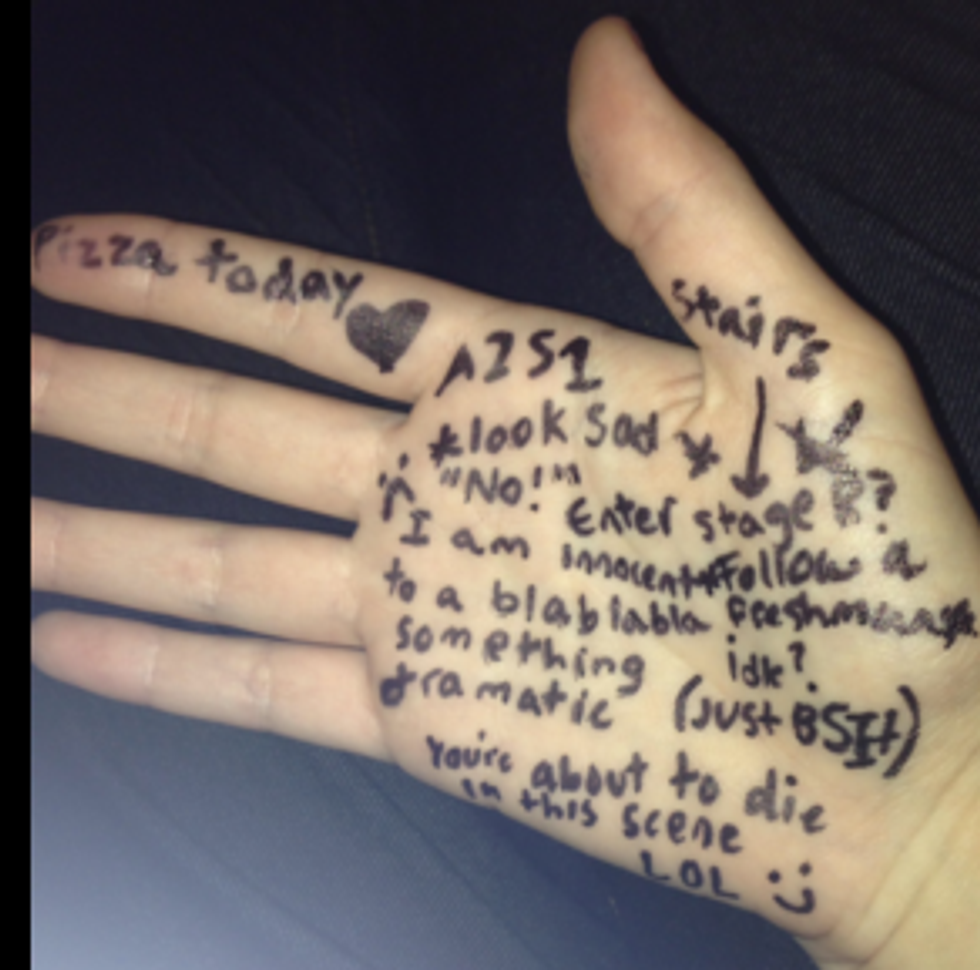 Pizza today
stairs
A2S1
*look sad*
"No!"
Enter stage R?
I am innocent
*Follow a
to a blablabla
something
idk?
dramatic
(just BS It)
You're about to die
in this scene
LOL :)